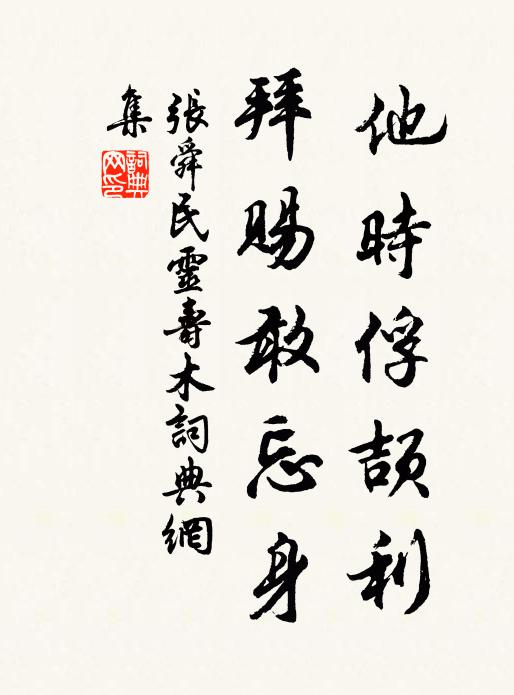 他時俘頡利
拜賜敢忘身
張舜民靈壽木詞典網
集
詞典網印